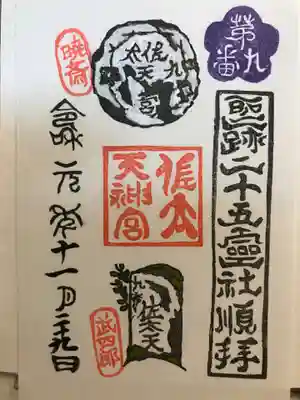 第九番
聖跡二十五霊社順拝
佐太天宮
九
佐太
天神宮
佐太天
暁斎
武四郎
令和元年十一月二十九日